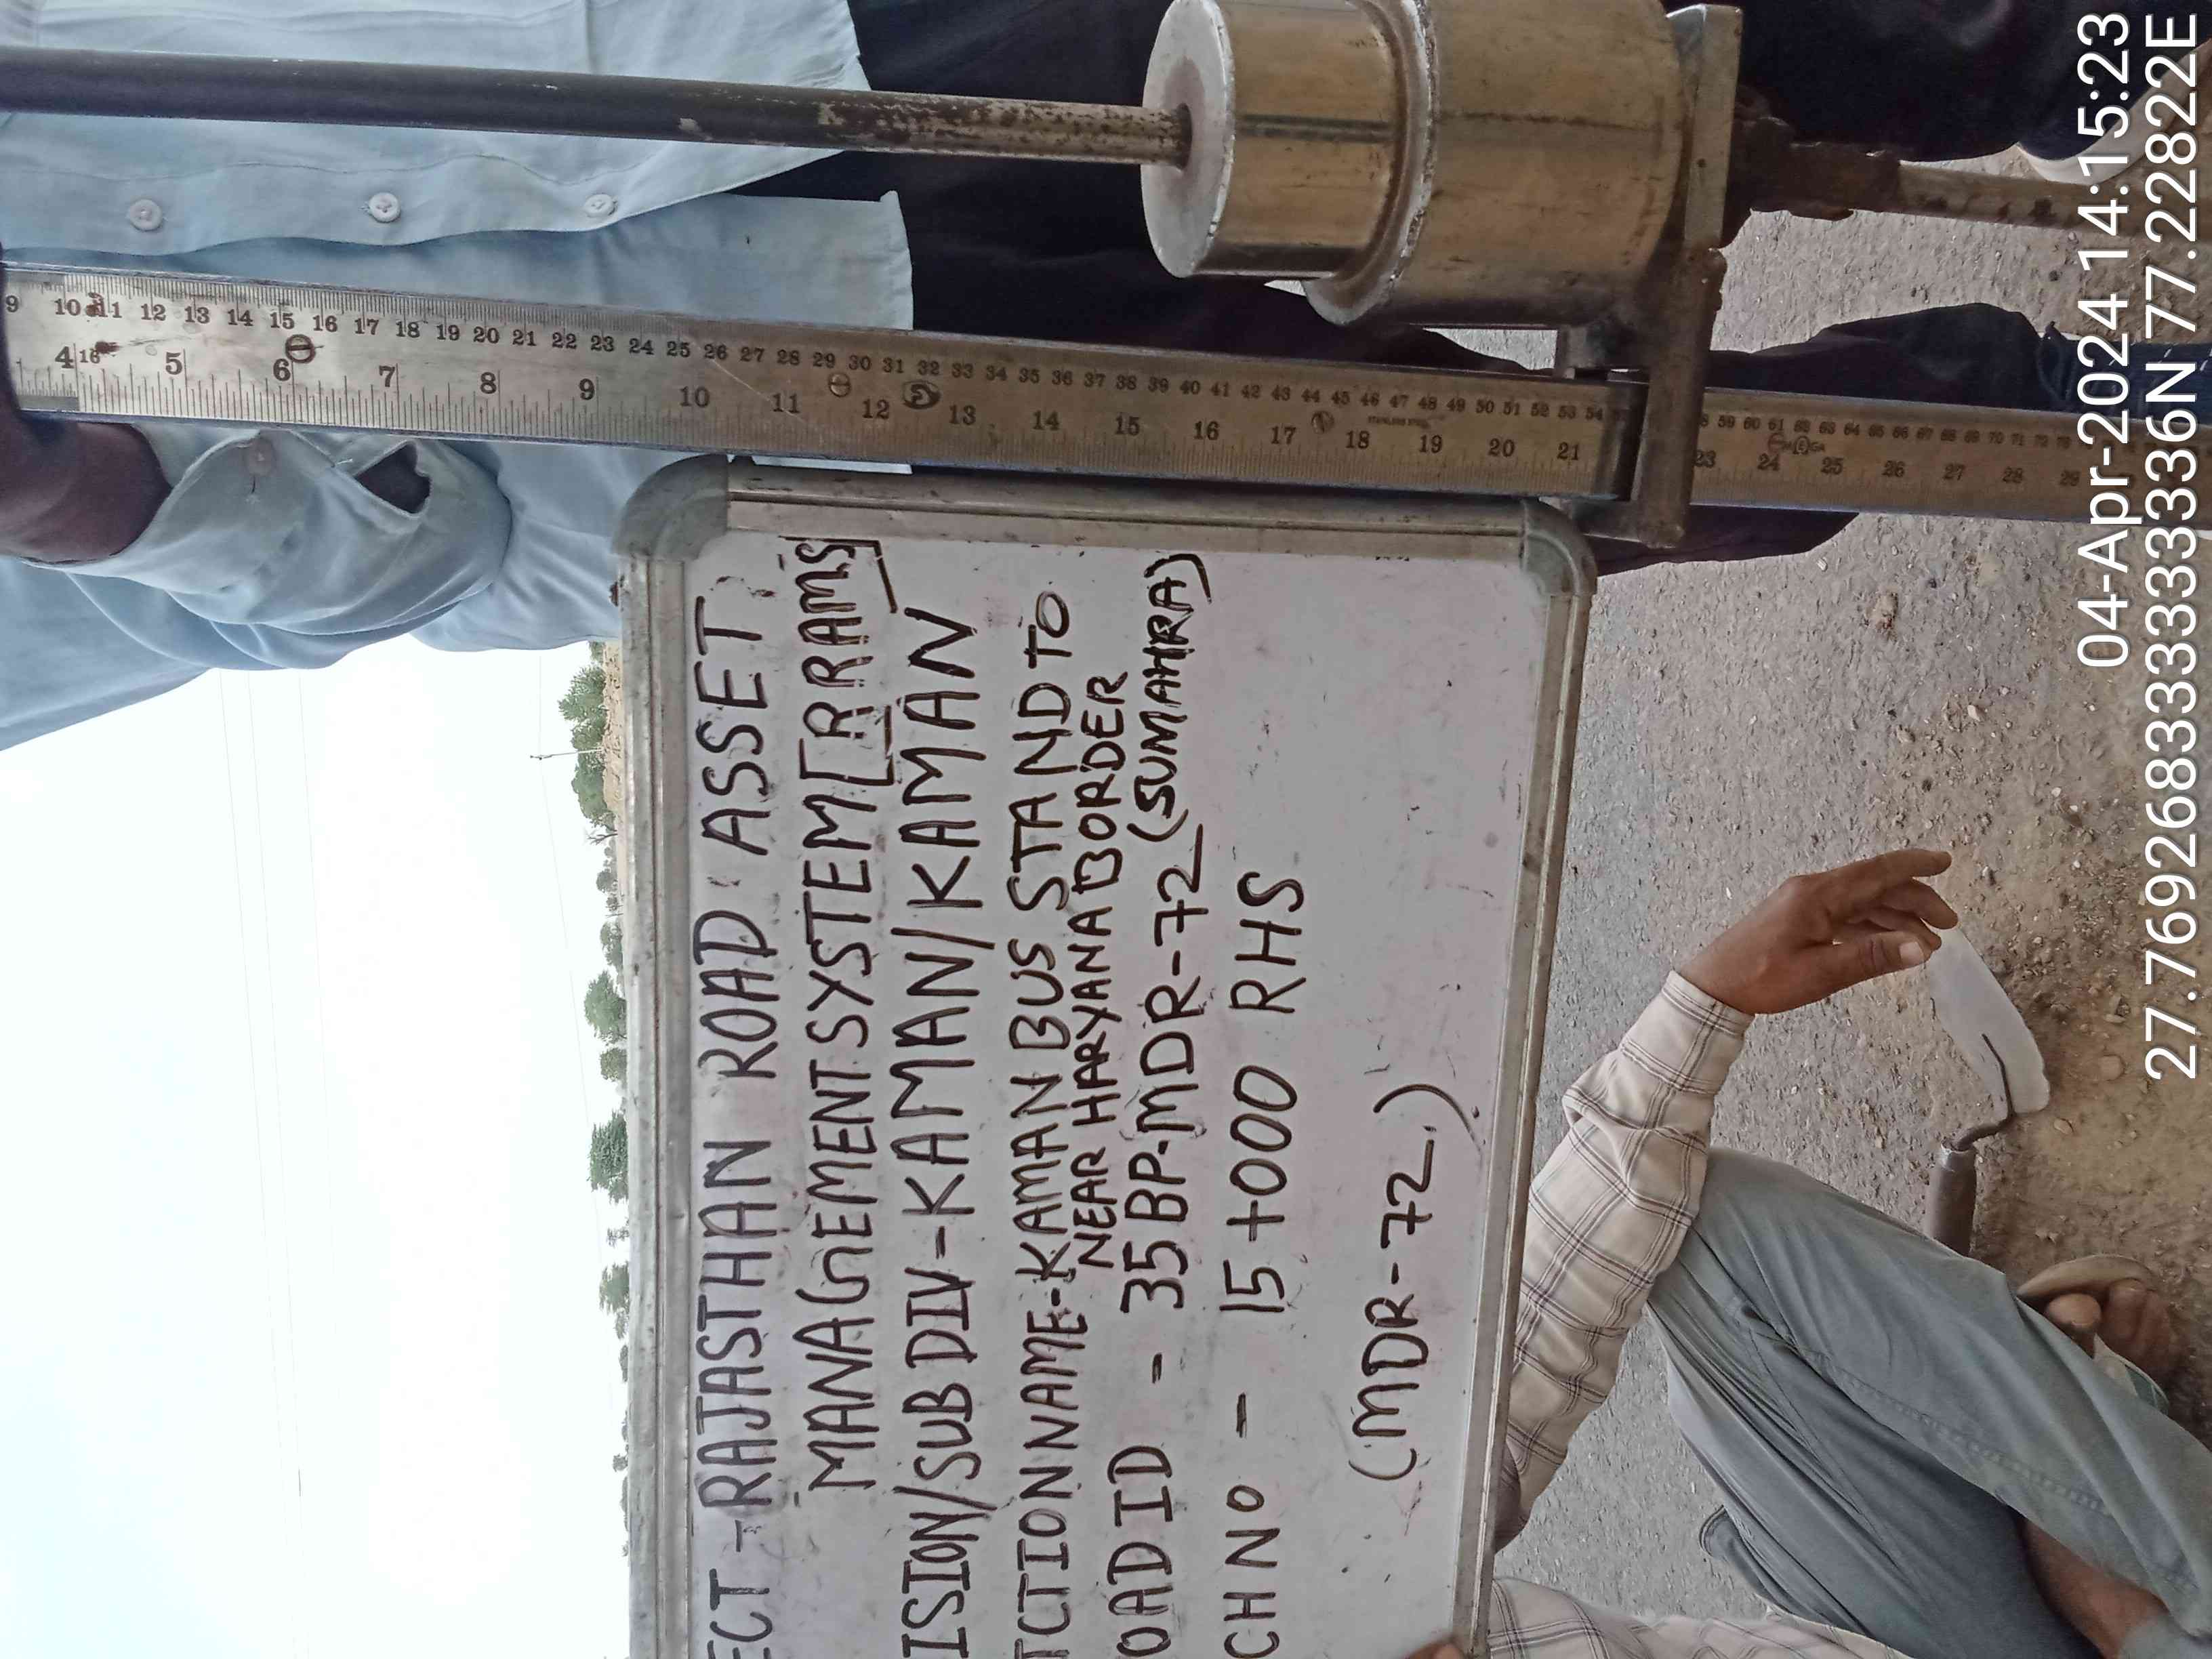 ECT - RAJASTHAN ROAD ASSET
MANAGEMENT SYSTEM [RRAMS]
ISION/SUB DIV - KAMAN/KAMAN
CTION NAME - KAMAN BUS STAND TO
NEAR HARYANA BORDER
OAD ID - 35BP-MDR-72 (SUMAHRA)
CH NO - 15+000 RHS
(MDR-72.)
9 10 11 12 13 14 15 16 17 18 19 20 21 22 23 24 25 26 27 28 29 30 31 32 33 34 35 36 37 38 39 40 41 42 43 44 45 46 47 48 49 50 51 52 53 54 59 60 61 62 63 64 65 66 67 68 69 70 71
4 5 6 7 8 9 10 11 12 13 14 15 16 17 18 19 20 21 23 24 25 26 27 28 29
04-Apr-2024 14:15:23
27.769268333333336N 77.22822E